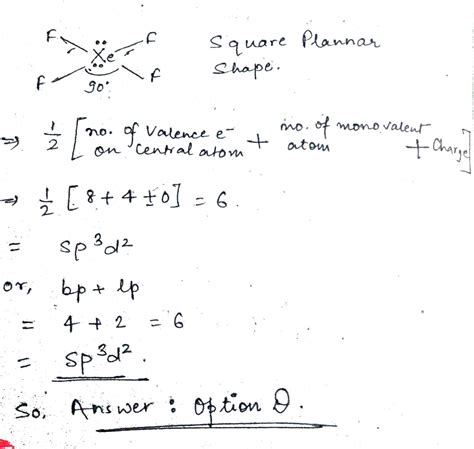 F F
Xe
F F
90°
Square Plannar
Shape.
⇒ 1/2 [no. of valence e⁻ on central atom + no. of monovalent atom + Charge]
⇒ 1/2 [8 + 4 ± 0] = 6.
= sp³d²
or, bp + lp
= 4 + 2 = 6
= sp³d².
So, Answer : Option D.